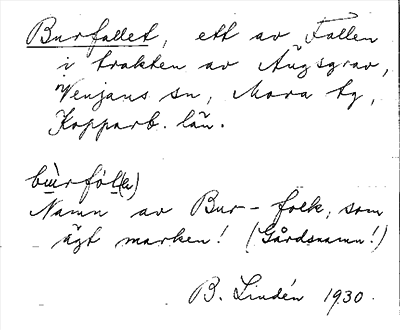 Burfallet, ett av Fallen
i trakten av Ängsgrav,
Venjans sn, Mora tg,
Kopparb. län.
bùrfól(a)
Namn av Bur-folk, som
ägt marken! (Gårdsnamn!)
B. Lindén 1930.